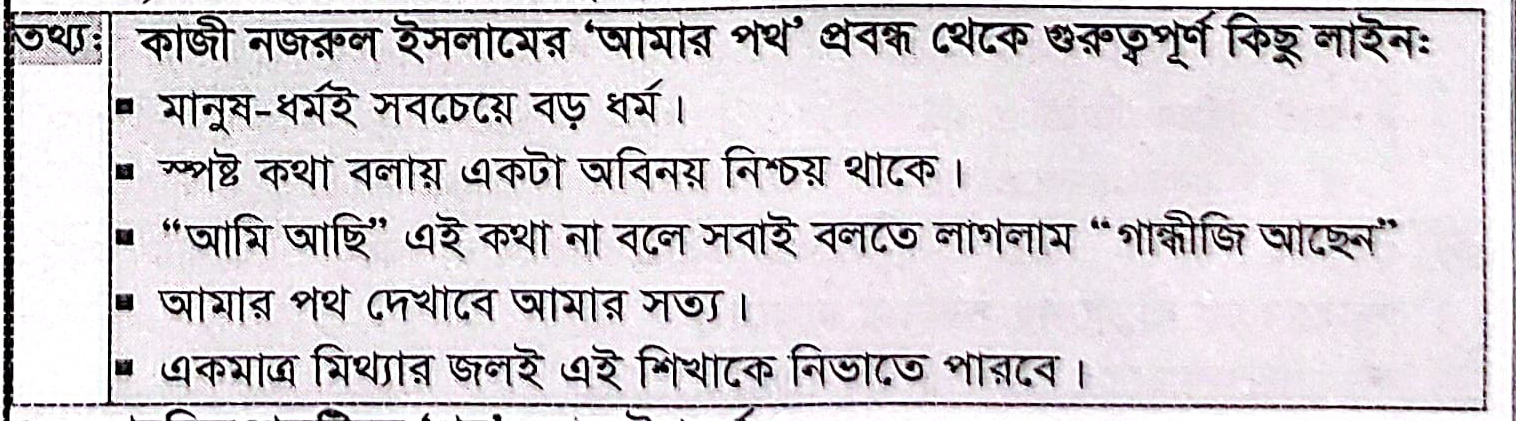 তথ্য: কাজী নজরুল ইসলামের ‘আমার পথ’ প্রবন্ধ থেকে গুরুত্বপূর্ণ কিছু লাইনঃ
▪ মানুষ-ধর্মই সবচেয়ে বড় ধর্ম।
▪ স্পষ্ট কথা বলায় একটা অবিনয় নিশ্চয় থাকে।
▪ “আমি আছি” এই কথা না বলে সবাই বলতে লাগলাম “গান্ধীজি আছেন”
▪ আমার পথ দেখাবে আমার সত্য।
▪ একমাত্র মিথ্যার জলই এই শিখাকে নিভাতে পারবে।